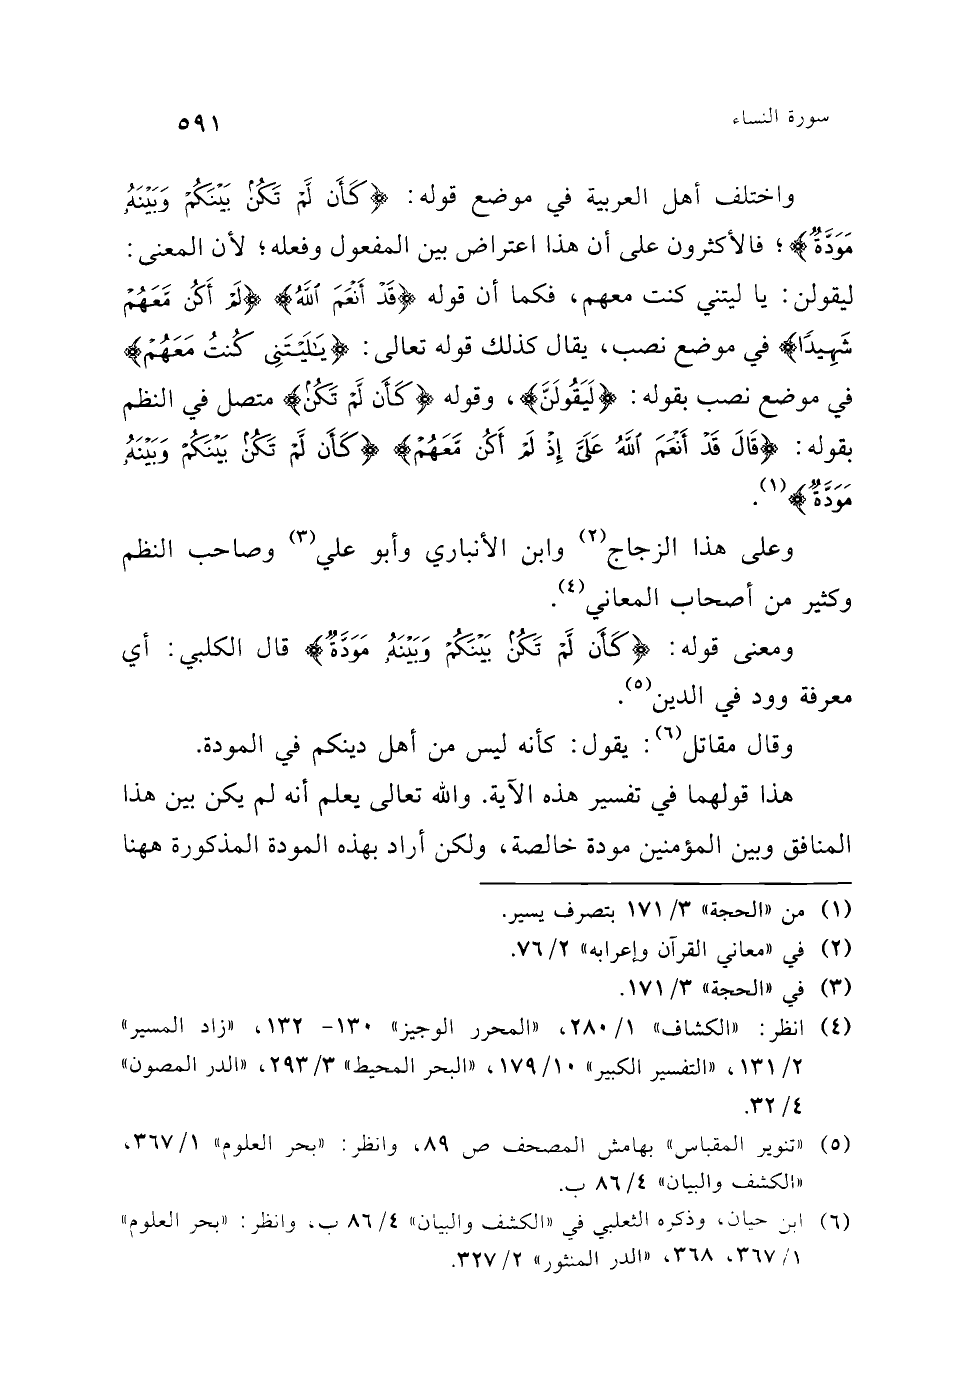 سورة النساء ٥٩١
واختلف أهل العربية في موضع قوله: ﴿كَأَن لَّمْ تَكُنۢ بَيْنَكُمْ وَبَيْنَهُۥ
مَوَدَّةٌ﴾؛ فالأكثرون على أن هذا اعتراض بين المفعول وفعله؛ لأن المعنى:
ليقولن: يا ليتني كنت معهم، فكما أن قوله ﴿قَدْ أَنْعَمَ ٱللَّهُ﴾ ﴿لَمْ أَكُن مَّعَهُمْ
شَهِيدًا﴾ في موضع نصب، يقال كذلك قوله تعالى: ﴿يَٰلَيْتَنِى كُنتُ مَعَهُمْ﴾
في موضع نصب بقوله: ﴿لَيَقُولَنَّ﴾، وقوله ﴿كَأَن لَّمْ تَكُنۢ﴾ متصل في النظم
بقوله: ﴿قَالَ قَدْ أَنْعَمَ ٱللَّهُ عَلَىَّ إِذْ لَمْ أَكُن مَّعَهُمْ﴾ ﴿كَأَن لَّمْ تَكُنۢ بَيْنَكُمْ وَبَيْنَهُۥ
مَوَدَّةٌ﴾(١).
وعلى هذا الزجاج(٢) وابن الأنباري وأبو علي(٣) وصاحب النظم
وكثير من أصحاب المعاني(٤).
ومعنى قوله: ﴿كَأَن لَّمْ تَكُنۢ بَيْنَكُمْ وَبَيْنَهُۥ مَوَدَّةٌ﴾ قال الكلبي: أي
معرفة وود في الدين(٥).
وقال مقاتل(٦): يقول: كأنه ليس من أهل دينكم في المودة.
هذا قولهما في تفسير هذه الآية. والله تعالى يعلم أنه لم يكن بين هذا
المنافق وبين المؤمنين مودة خالصة، ولكن أراد بهذه المودة المذكورة ههنا
(١) من «الحجة» ٣/ ١٧١ بتصرف يسير.
(٢) في «معاني القرآن وإعرابه» ٢/ ٧٦.
(٣) في «الحجة» ٣/ ١٧١.
(٤) انظر: «الكشاف» ١/ ٢٨٠، «المحرر الوجيز» ١٣٠- ١٣٢، «زاد المسير»
٢/ ١٣١، «التفسير الكبير» ١٠/ ١٧٩، «البحر المحيط» ٣/ ٢٩٣، «الدر المصون»
٤/ ٣٢.
(٥) «تنوير المقباس» بهامش المصحف ص ٨٩، وانظر: «بحر العلوم» ١/ ٣٦٧،
«الكشف والبيان» ٤/ ٨٦ ب.
(٦) ابن حيان، وذكره الثعلبي في «الكشف والبيان» ٤/ ٨٦ ب، وانظر: «بحر العلوم»
١/ ٣٦٧، ٣٦٨، «الدر المنثور» ٢/ ٣٢٧.